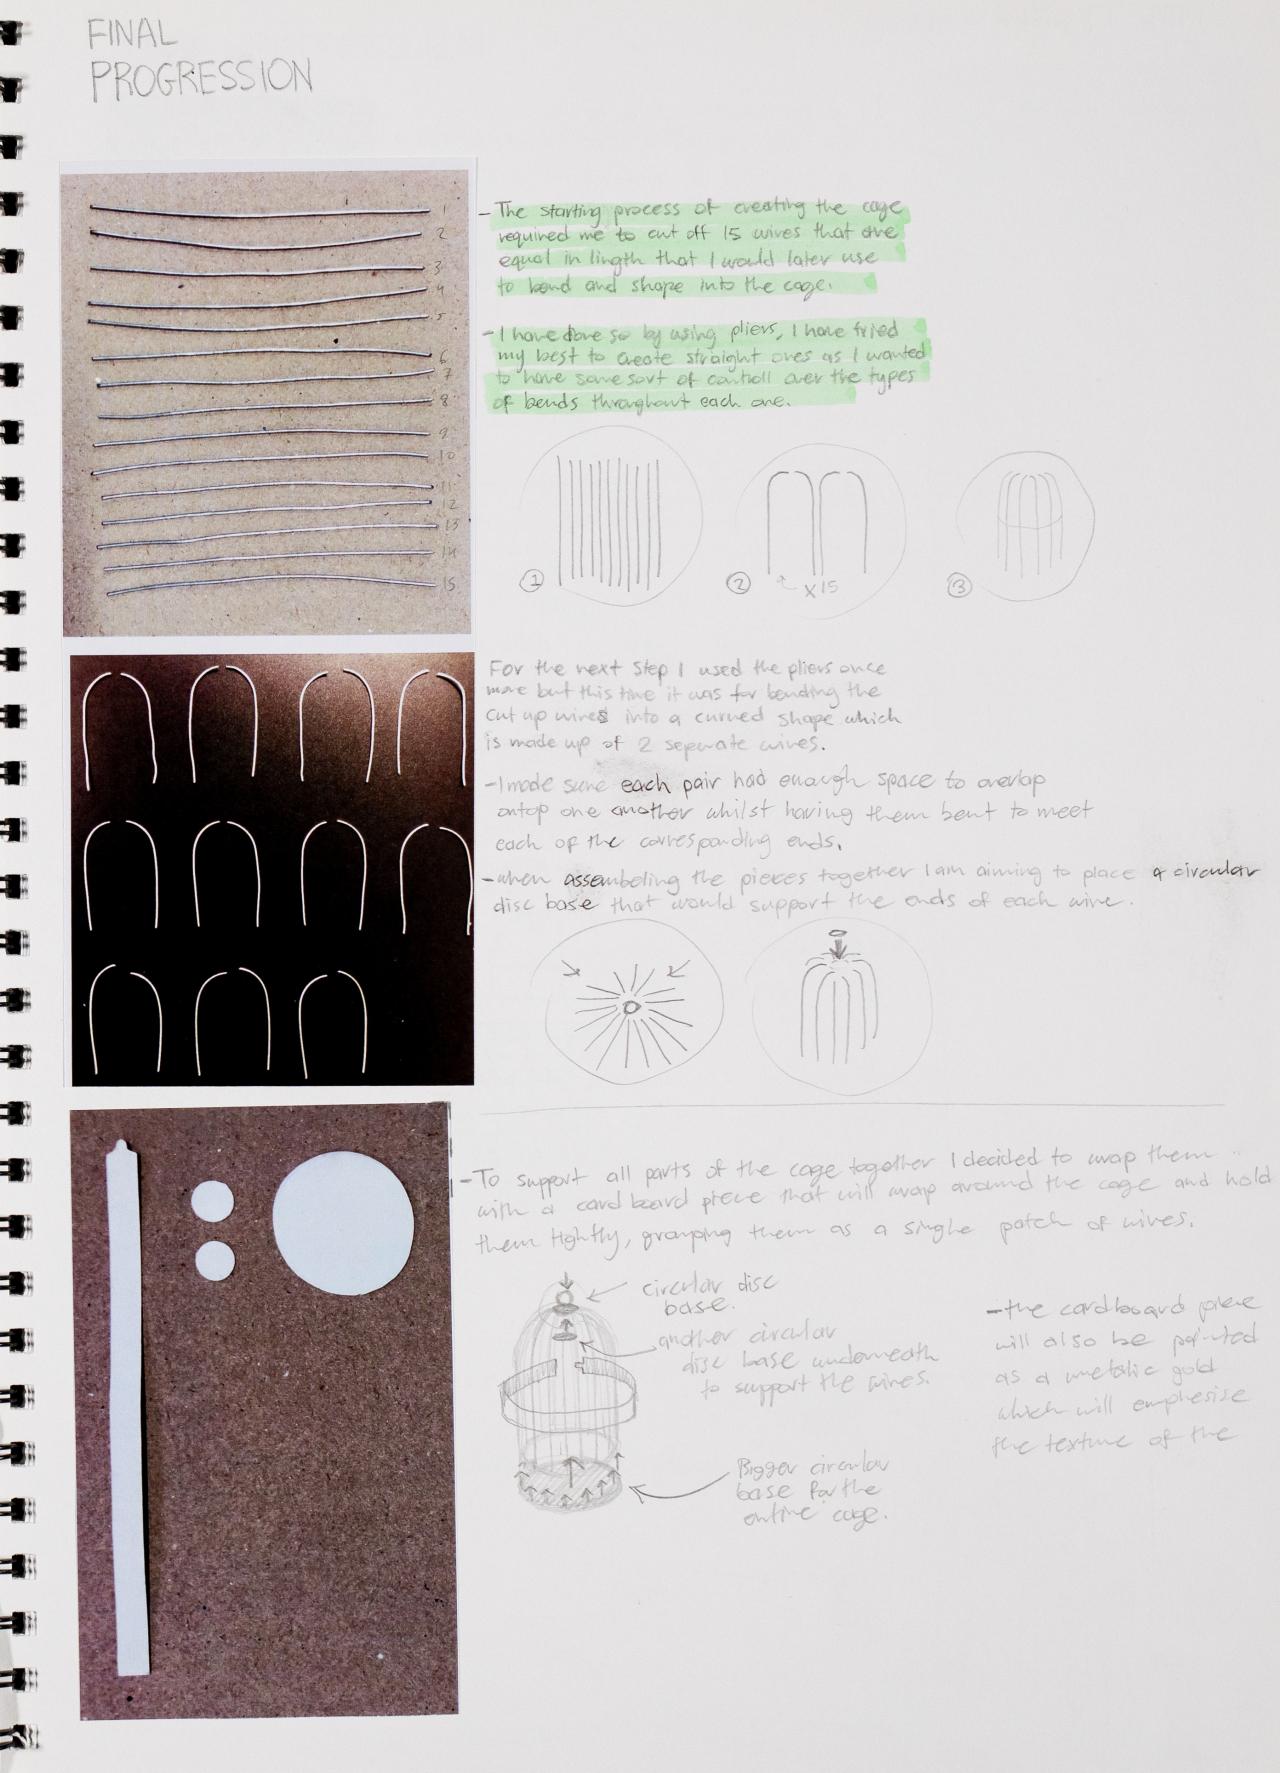 FINAL
PROGRESSION
1
2
3
4
5
6
7
8
9
10
11
12
13
14
15
- The starting process of creating the cage
required me to cut off 15 wires that are
equal in lingth that I would later use
to bend and shape into the cage.
- I have done so by using pliers, I have tried
my best to create straight ones as I wanted
to have some sort of controll over the types
of bends throughout each one.
1
2
x15
3
For the next step I used the pliers once
more but this time it was for bending the
cut up wires into a curved shape which
is made up of 2 seperate wires.
- I made sure each pair had enough space to overlap
ontop one another whilst having them bent to meet
each of the corresponding ends.
- when assembeling the pieces together I am aiming to place a circular
disc base that would support the ends of each wire.
- To support all parts of the cage together I decided to wrap them
with a cardboard piece that will wrap around the cage and hold
them tightly, grouping them as a single patch of wires.
circular disc
base.
another circular
disc base underneath
to support the wires.
Bigger circular
base for the
entire cage.
- the cardboard piece
will also be painted
as a metalic gold
which will emphesise
the texture of the